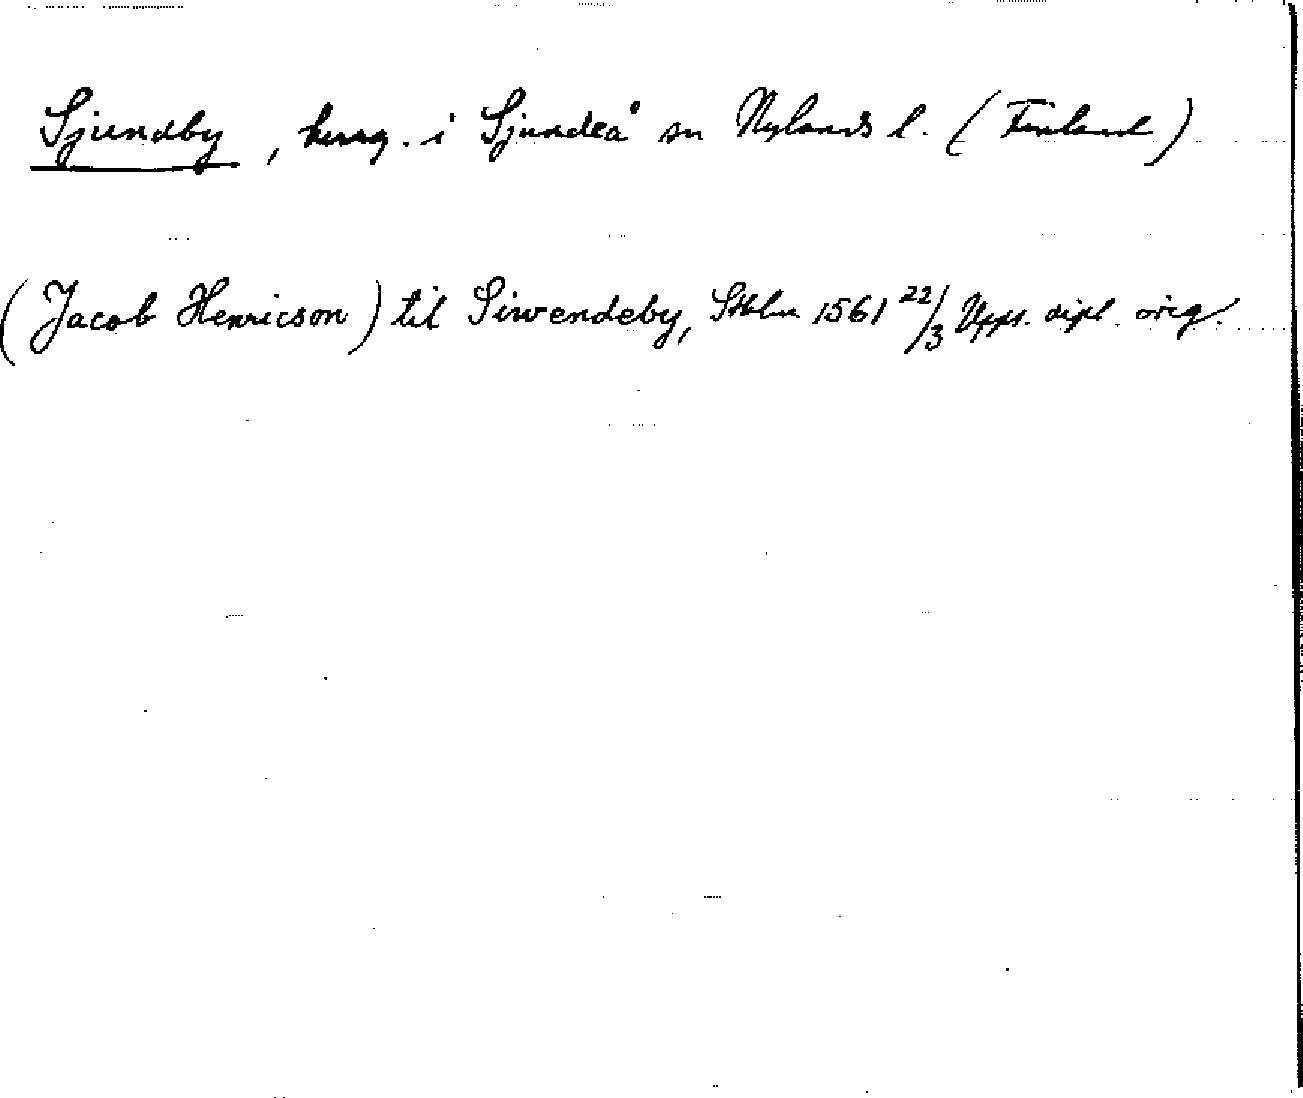 Sjundby, herrg. i Sjundeå sn Nylands l. (Finland)
(Jacob Henricson) til Siwendeby, Sthlm 1561 22/3 Upps. dipl. orig.